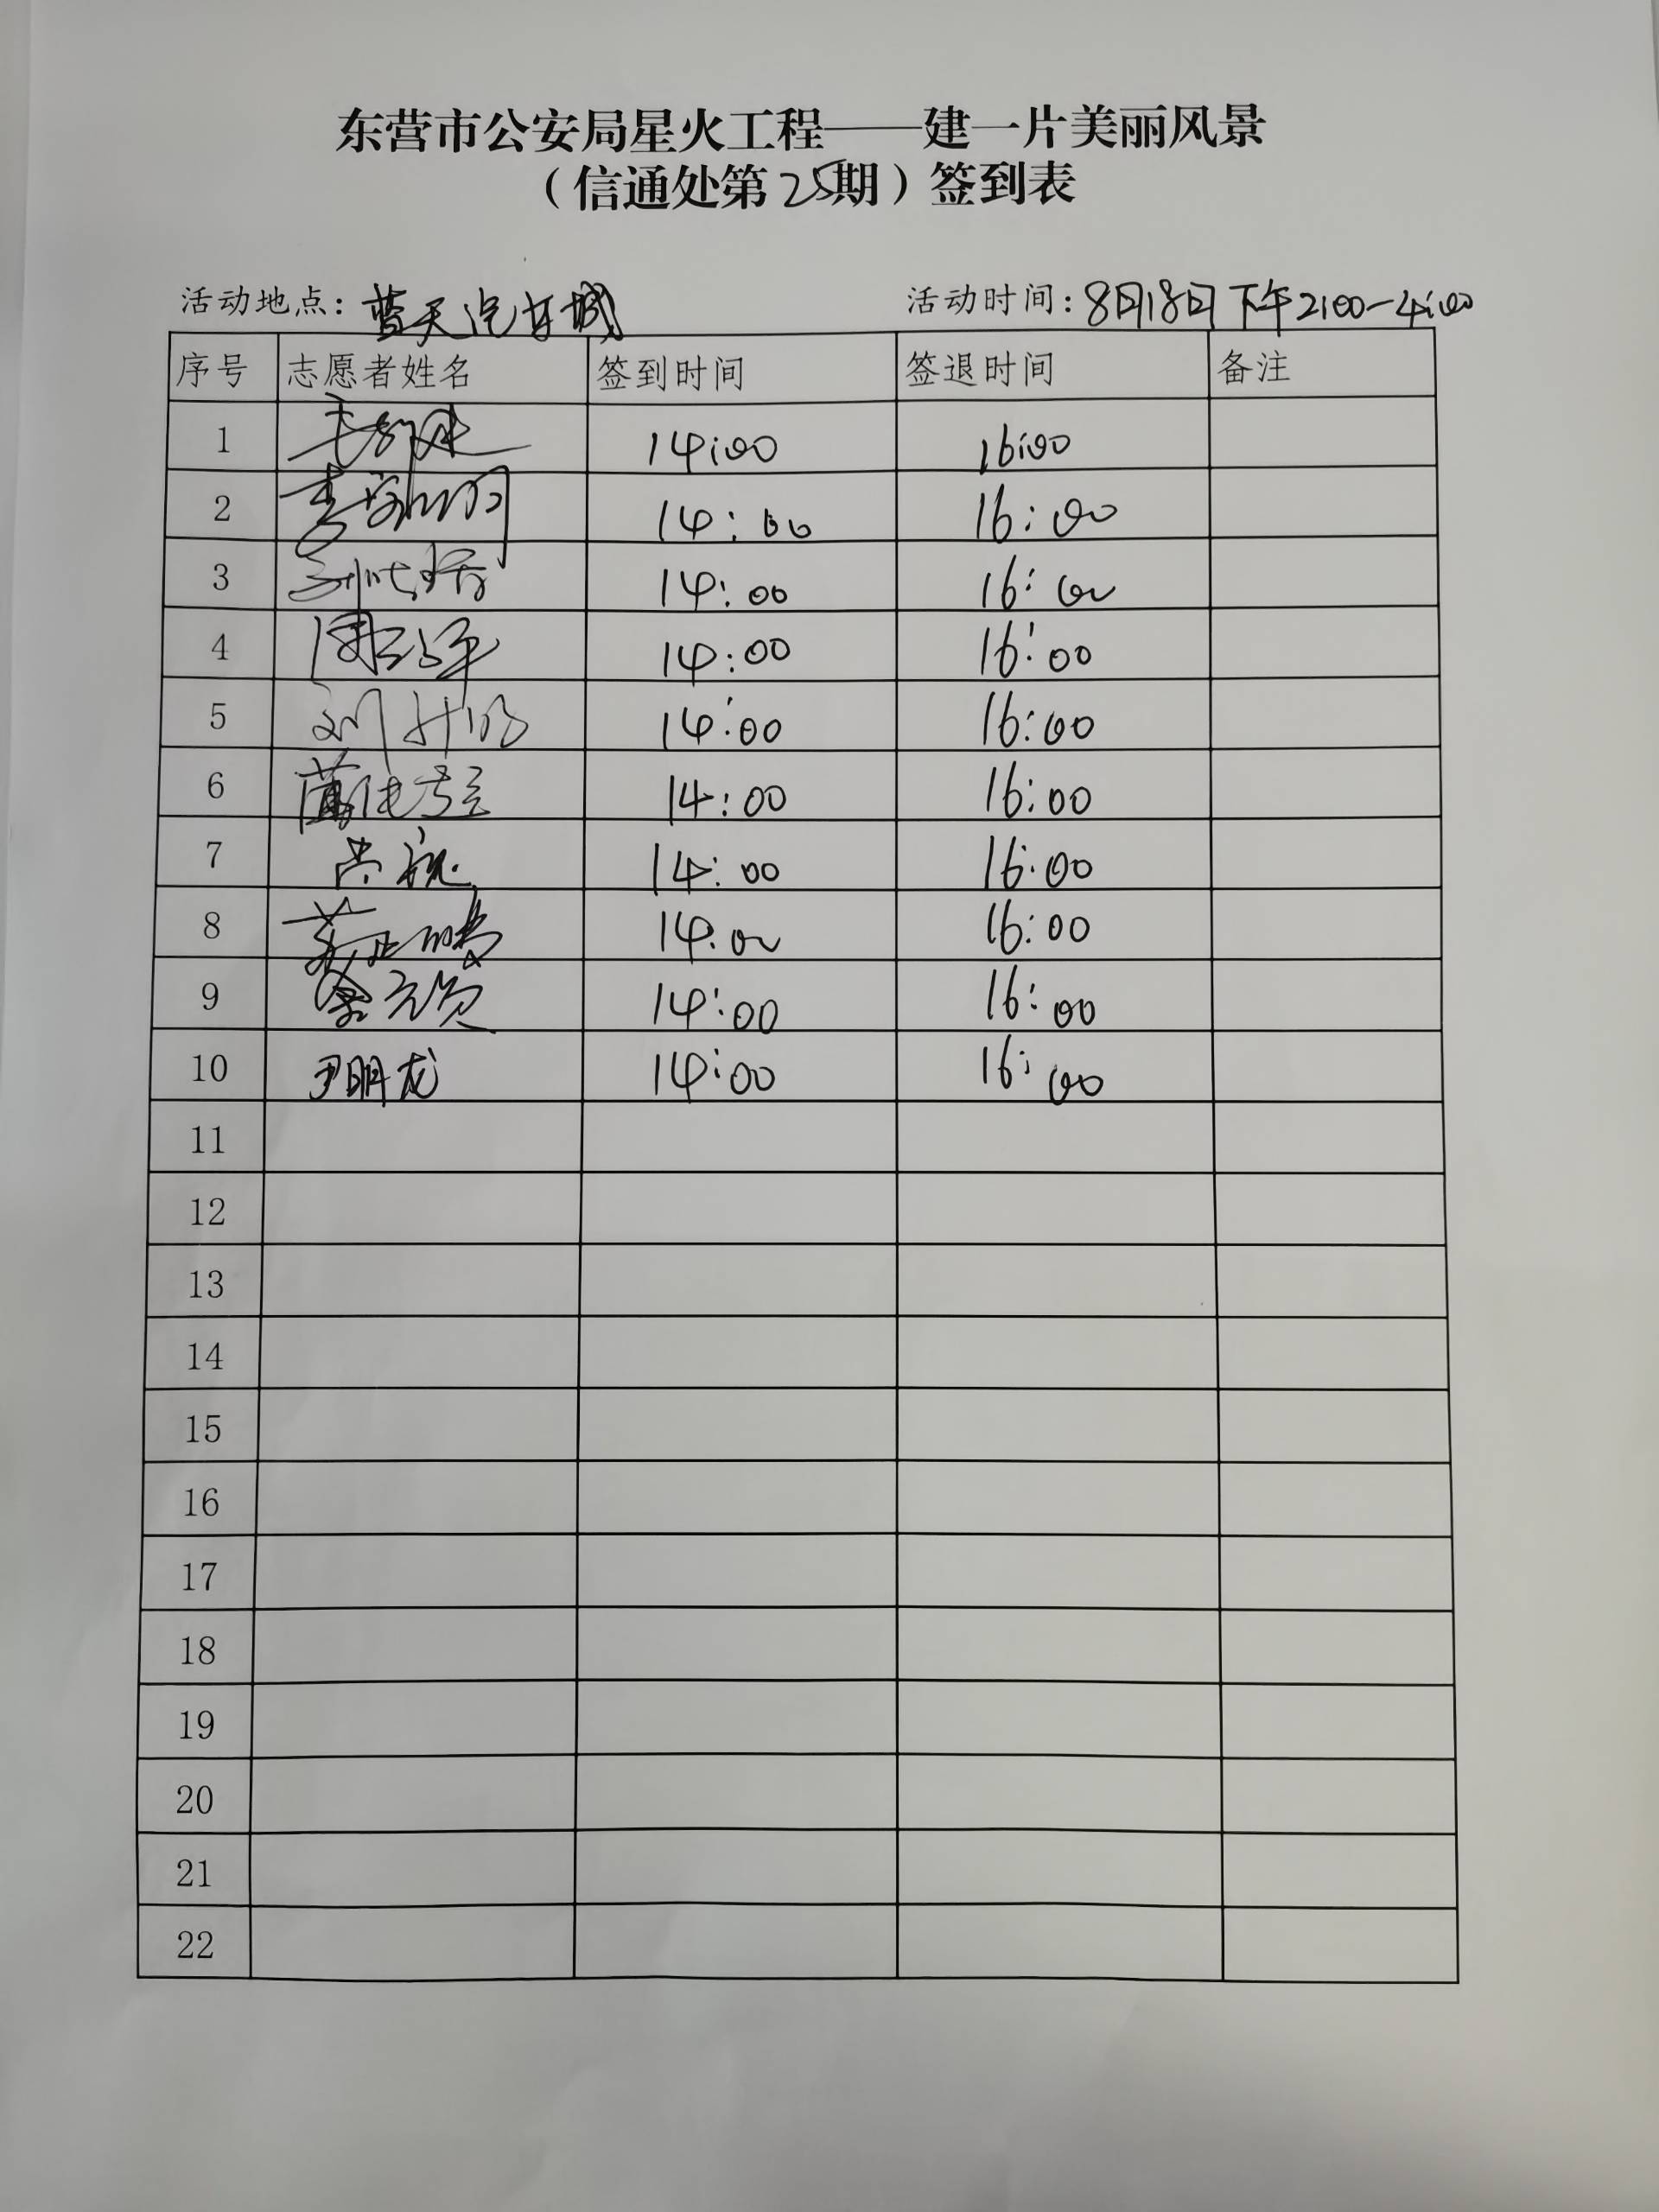 东营市公安局星火工程——建一片美丽风景
（信通处第25期）签到表
活动地点：蓝天汽车城 活动时间：8月18日下午2:00-4:00
序号 志愿者姓名 签到时间 签退时间 备注
1 14:00 16:00
2 14:00 16:00
3 14:00 16:00
4 14:00 16:00
5 14:00 16:00
6 14:00 16:00
7 14:00 16:00
8 14:00 16:00
9 14:00 16:00
10 尹明龙 14:00 16:00
11
12
13
14
15
16
17
18
19
20
21
22